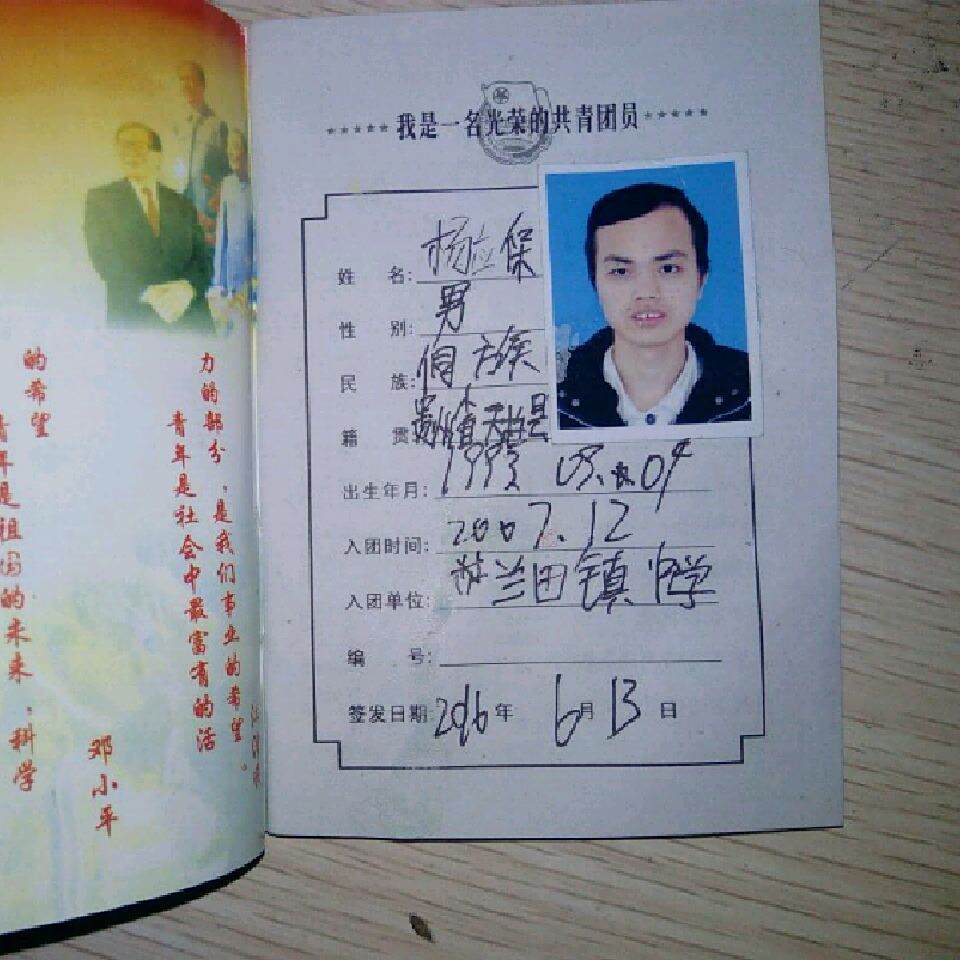 我是一名光荣的共青团员
姓 名: 杨应保
性 别: 男
民 族: 侗族
籍 贯: 贵州省天柱县
出生年月: 1993
入团时间: 2007.12
入团单位: 兰田镇中学
编 号:
签发日期: 2016年 6月13日
的希望
青年是祖国的未来,科学
力的部分,是我们事业的希望。
青年是社会中最富有的活
邓小平